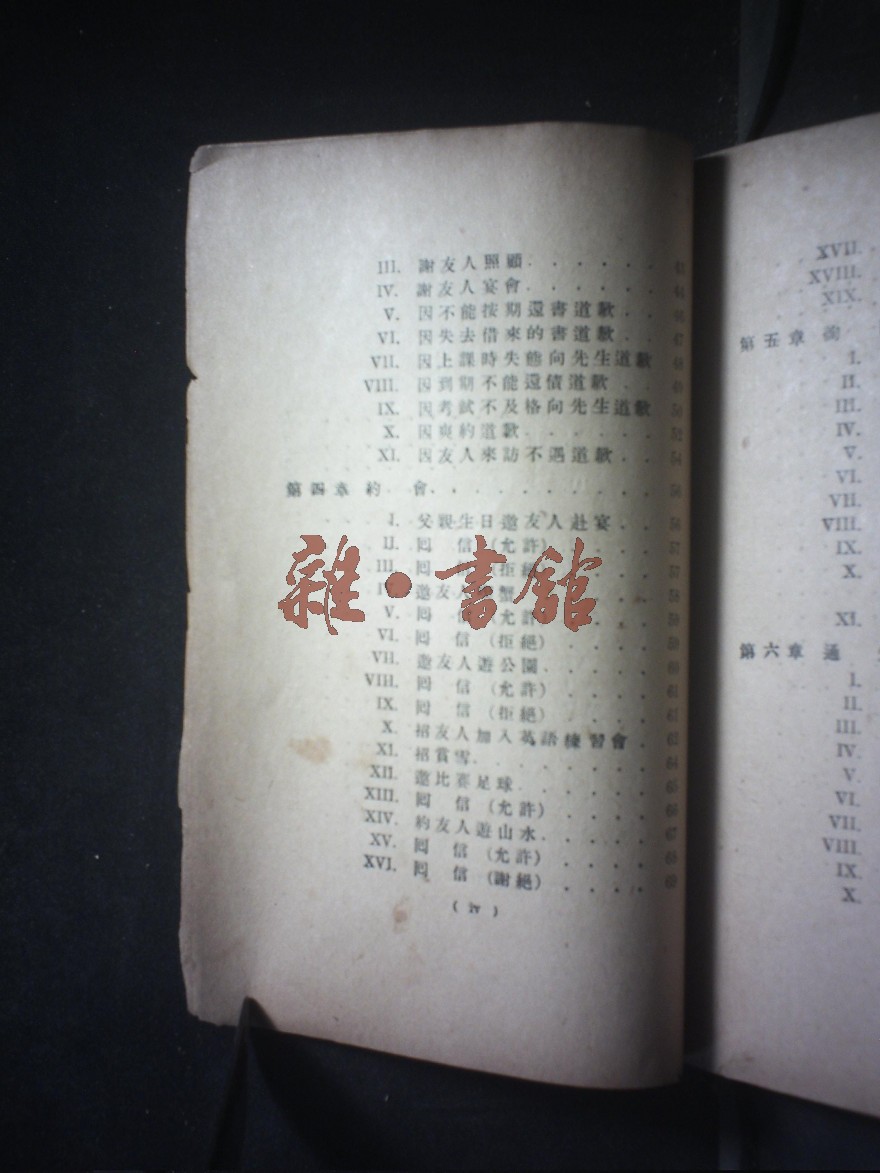 III. 謝友人照顧
IV. 謝友人宴會
V. 因不能按期還書道歉
VI. 因失去借來的書道歉
VII. 因上課時失態向先生道歉
VIII. 因到期不能還債道歉
IX. 因考試不及格向先生道歉
X. 因爽約道歉
XI. 因友人來訪不遇道歉
第四章 約 會
I. 父親生日邀友人赴宴
II. 囘 信 (允許)
III. 囘 拒絕)
邀友人 蟹
V. 囘 信 (允許)
VI. 囘 信 (拒絕)
VII. 邀友人遊公園
VIII. 囘 信 (允許)
IX. 囘 信 (拒絕)
X. 招友人加入英語練習會
XI. 招賞雪
XII. 邀比賽足球
XIII. 囘 信 (允許)
XIV. 約友人遊山水
XV. 囘 信 (允許)
XVI. 囘 信 (謝絕)
( iv )
雜·書館
XVII.
XVIII.
XIX.
第五章
I.
II.
III.
IV.
V.
VI.
VII.
VIII.
IX.
X.
XI.
第六章 通
I.
II.
III.
IV.
V.
VI.
VII.
VIII.
IX.
X.